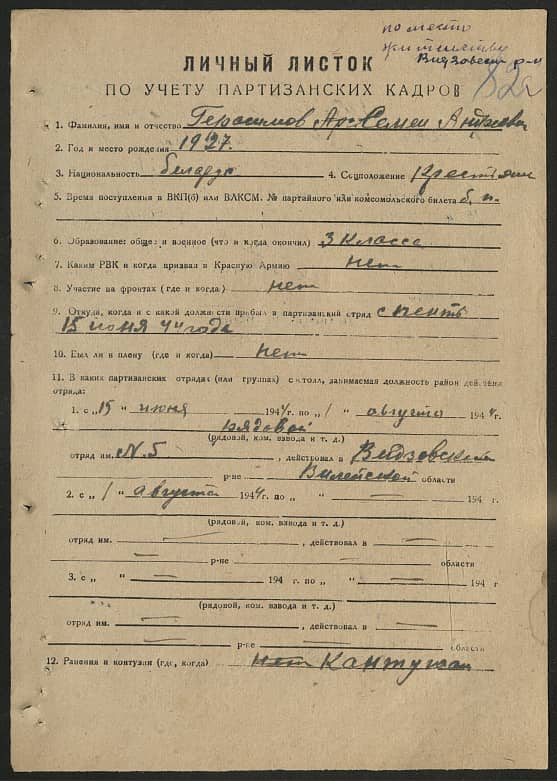 по место
жительству
Видзовск р-н
ЛИЧНЫЙ ЛИСТОК
ПО УЧЕТУ ПАРТИЗАНСКИХ КАДРОВ
1. Фамилия, имя и отчество Герасимов Арсемен Андреев
2. Год и место рождения 1927.
3. Национальность беларус 4. Соцположение Крестьянин
5. Время поступления в ВКП(б) или ВЛКСМ. № партийного или комсомольского билета б. п.
6. Образование: общее и военное (что и когда окончил) 3 класса
7. Каким РВК и когда призван в Красную Армию нет
8. Участие на фронтах (где и когда) нет
9. Откуда, когда и с какой должности прибыл в партизанский отряд
15 июня 44 года
10. Был ли в плену (где и когда) нет
11. В каких партизанских отрядах (или группах) состоял, занимаемая должность район действия
отряда:
1. с „15 " июня 1944 г. по „1 " августа 1944 г.
рядовой
(рядовой, ком. взвода и т. д.)
отряд им. N. 5 , действовал в Видзовский
р-не Вилейской области
2. с „1 " августа 1944 г. по „ " — 194 г
(рядовой, ком. взвода и т. д.)
отряд им. — , действовал в —
— р-не — области
3. с „ " — 194 г. по „ " — 194 г
(рядовой, ком. взвода и т. д.)
отряд им. — , действовал в —
— р-не — области
12. Ранения и контузии (где, когда) нет Контужен